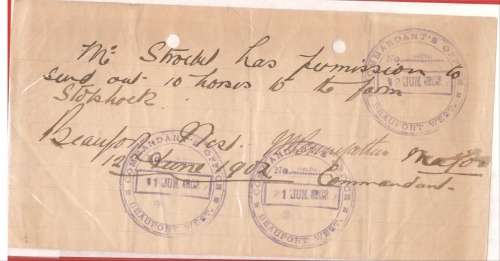 Mr Stroebel has permission to
send out 10 horses to the farm
Stolshoek.
Beaufort West.
12 June 1902
Major
Commandant.
COMMANDANT'S OFFICE
No.
12 JUN. 1902
BEAUFORT WEST.
COMMANDANT'S OFFICE
No.
11 JUN. 1902
BEAUFORT WEST.
COMMANDANT'S OFFICE
No.
11 JUN. 1902
BEAUFORT WEST.